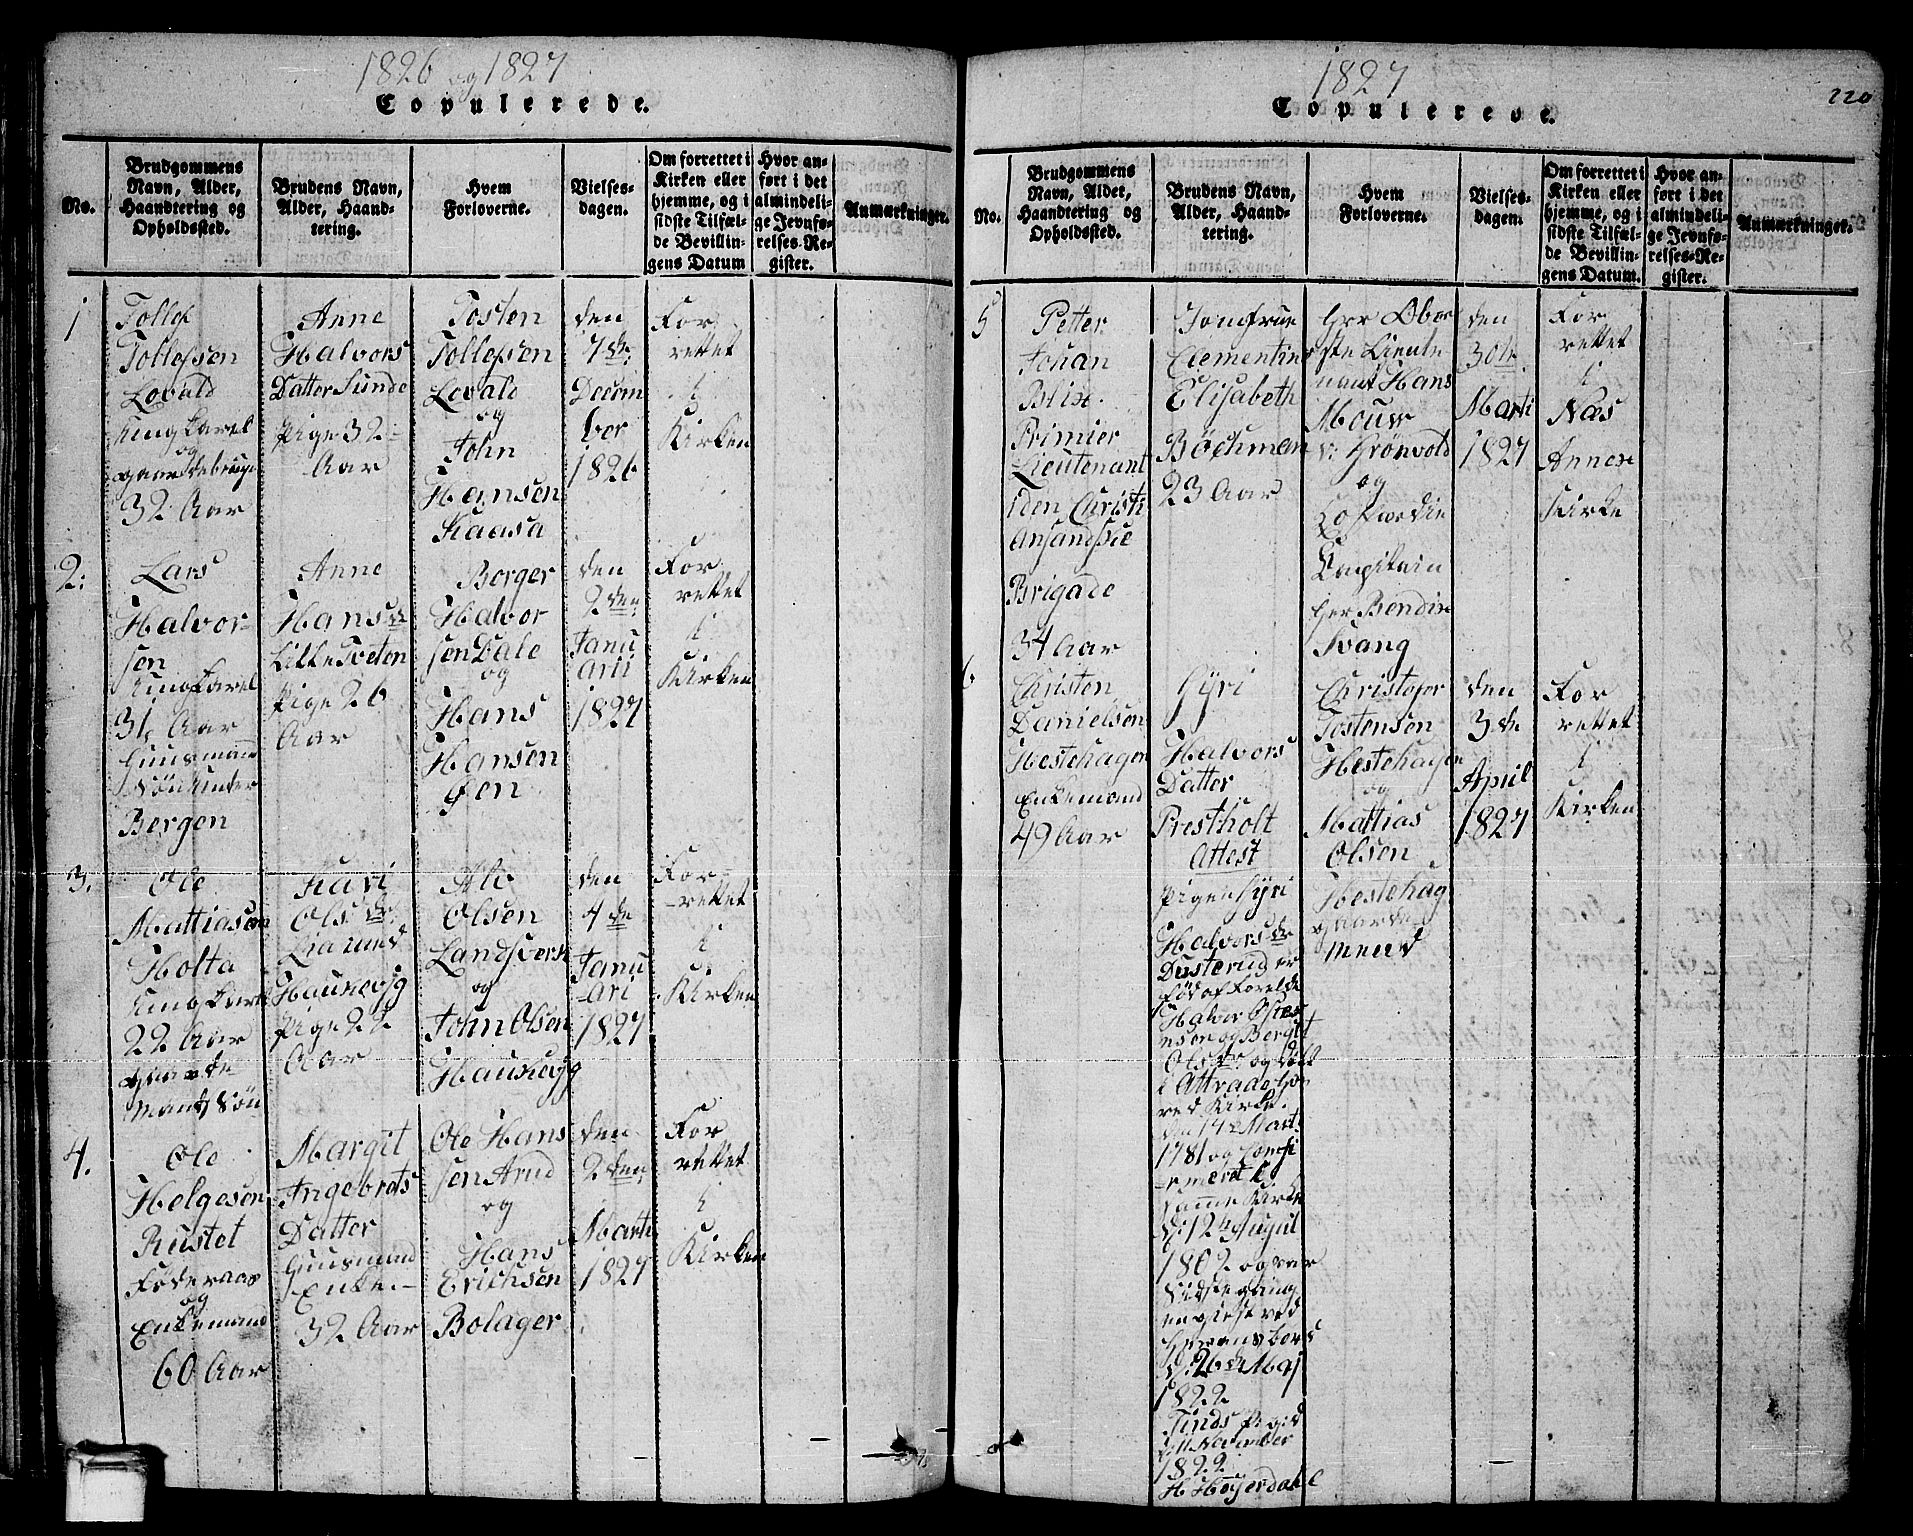 1826 og 1827
Copulerede.
No.
Brudgommens
Navn, Alder,
Haandtering og
Opholdssted.
Brudens Navn,
Alder, Haand-
tering.
Hvem
Forloverne.
Vielses-
dagen.
Om forrettet i
Kirken eller
hjemme, og i
sidste Tilfæl-
de Bevillin-
gens Datum
Hvor an-
ført i det
almindeli-
ge Jevnfø-
relses-Re-
gister.
Anmærkninger.
1
Tollef
Tollefsen
Lovald
Ungkarel
og
gaardebruger
32 Aar
Anne
Halvors
Datter Sunde
Pige 32
Aar
Tosten
Tollefsen
Lovald
og
John
Hansen
Kaasa
den
7de
Decem
ber
1826
For
rettet
i
Kirken
2:
Lars
Halvor-
sen
Ungkarel
31 Aar
Huusmands
Søn under
Bergen
Anne
Hansdr
Lille Tveten
Pige 26
Aar
Borger
Halvor
sen Dale
og
Hans
Hansen
Øen
den
2den
Janu
arii
1827
For
rettet
i
Kirken
3.
Ole
Mattiasen
Holta
Ungkarel
22 Aar
Gaarde
Mands Søn
Kari
Olsdr
Lia
Haukevig
Pige 22
Aar
Ole
Olsen
Landsverk
og
John Olsen
Haukevig
den
4de
Janu
ari
1827
For-
rettet
i
Kirken
4.
Ole
Helgesen
Rustet
Føderaad
og
Enkemand
60 Aar
Margit
Ingebrets
Datter
Huusmand
Enke
32 Aar
Ole Hans
sen Arud
og
Hans
Erichsen
Bolager
den
2den
Marti
1827
For
rettet
i
Kirken
1827
220
Copulerede.
No.
Brudgommens
Navn, Alder,
Haandtering og
Opholdssted.
Brudens Navn,
Alder, Haand-
tering.
Hvem
Forloverne.
Vielses-
dagen.
Om forrettet i
Kirken eller
hjemme, og i
sidste Tilfæl-
de Bevillin-
gens Datum.
Hvor an-
ført i det
almindeli-
ge Jevnfø-
relses-Re-
gister.
Anmærkninger.
5
Petter
Johan
Blix
Primier
Lieutenant
i den Christi
ansandske
Brigade
34 Aar
Jomfrue
Clementine
Elisabeth
Böchman
23 Aar
Herr Ober
ste Lieute
nant Hans
v: Grönvold
og
Capitain
Herr Bendix
Svang
den
30te
Marti
1827
For
rettet
i
Næs
Annex
Kirke
6
Christen
Danielsen
Hestehagen
Enkemand
49 Aar
Gyri
Halvors
Datter
Prestholt
Attest
Pigen Gyri
Halvorsdr
Dusterud er
født af Forelde
Halvor Østen
nsen og Bergit
Olsdr og døbt
i Attrade Ho
ved Kirke
den 14de Mart
1781 og Confi
rmeret i
samme Kirke
d: 12te August
1802 og var
sidste gang
ved
d: 26de Maj
1822
Tinds Pregd
d: 11 November
1822
H Høyerdahl
Christofer
Tostensen
Hestehagen
og
Mattias
Olsen
Hestehag
gaarde
mænd
den
3de
April
1827
For
rettet
i
Kirken